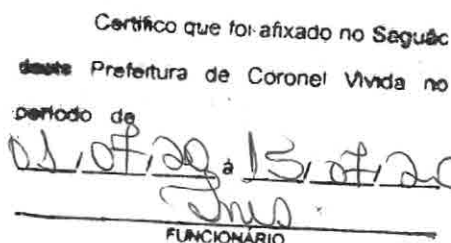 Certifico que foi afixado no Saguão
deste Prefeitura de Coronel Vivida no
período de
01, 07, 20 à 15, 07, 20
Ines
FUNCIONÁRIO